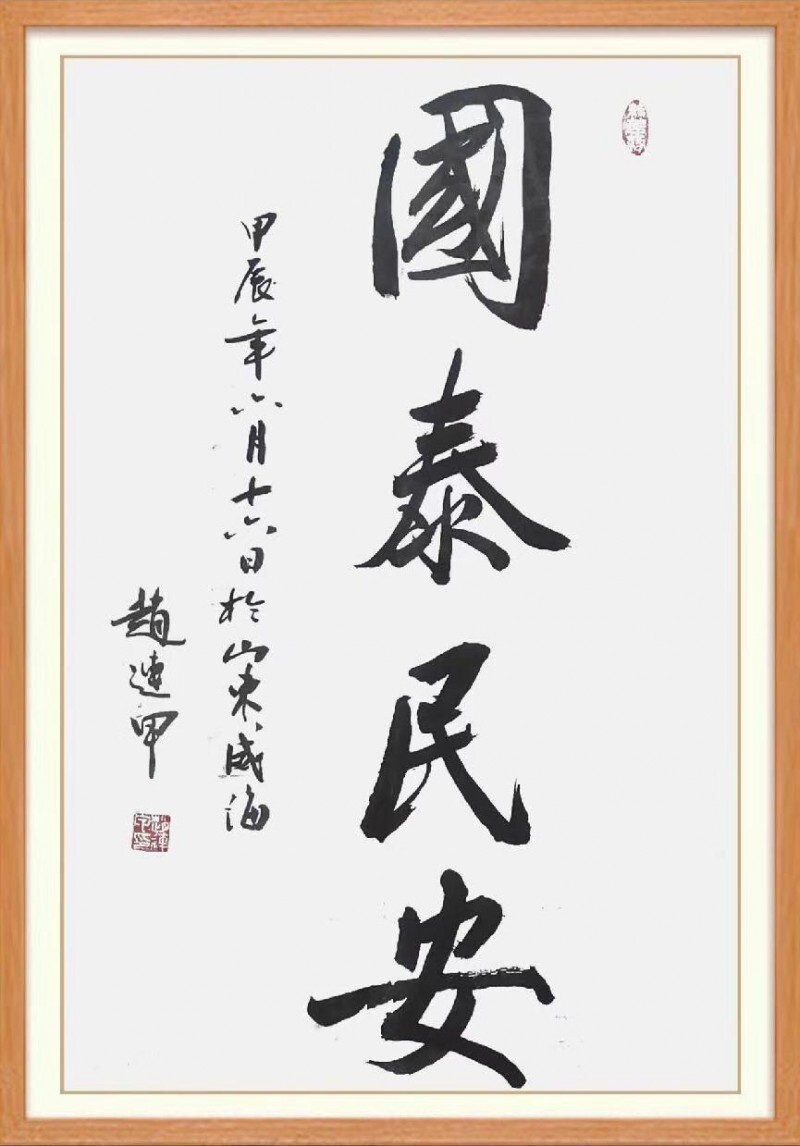 國泰民安
甲辰年六月十六日於山東威海
趙連甲